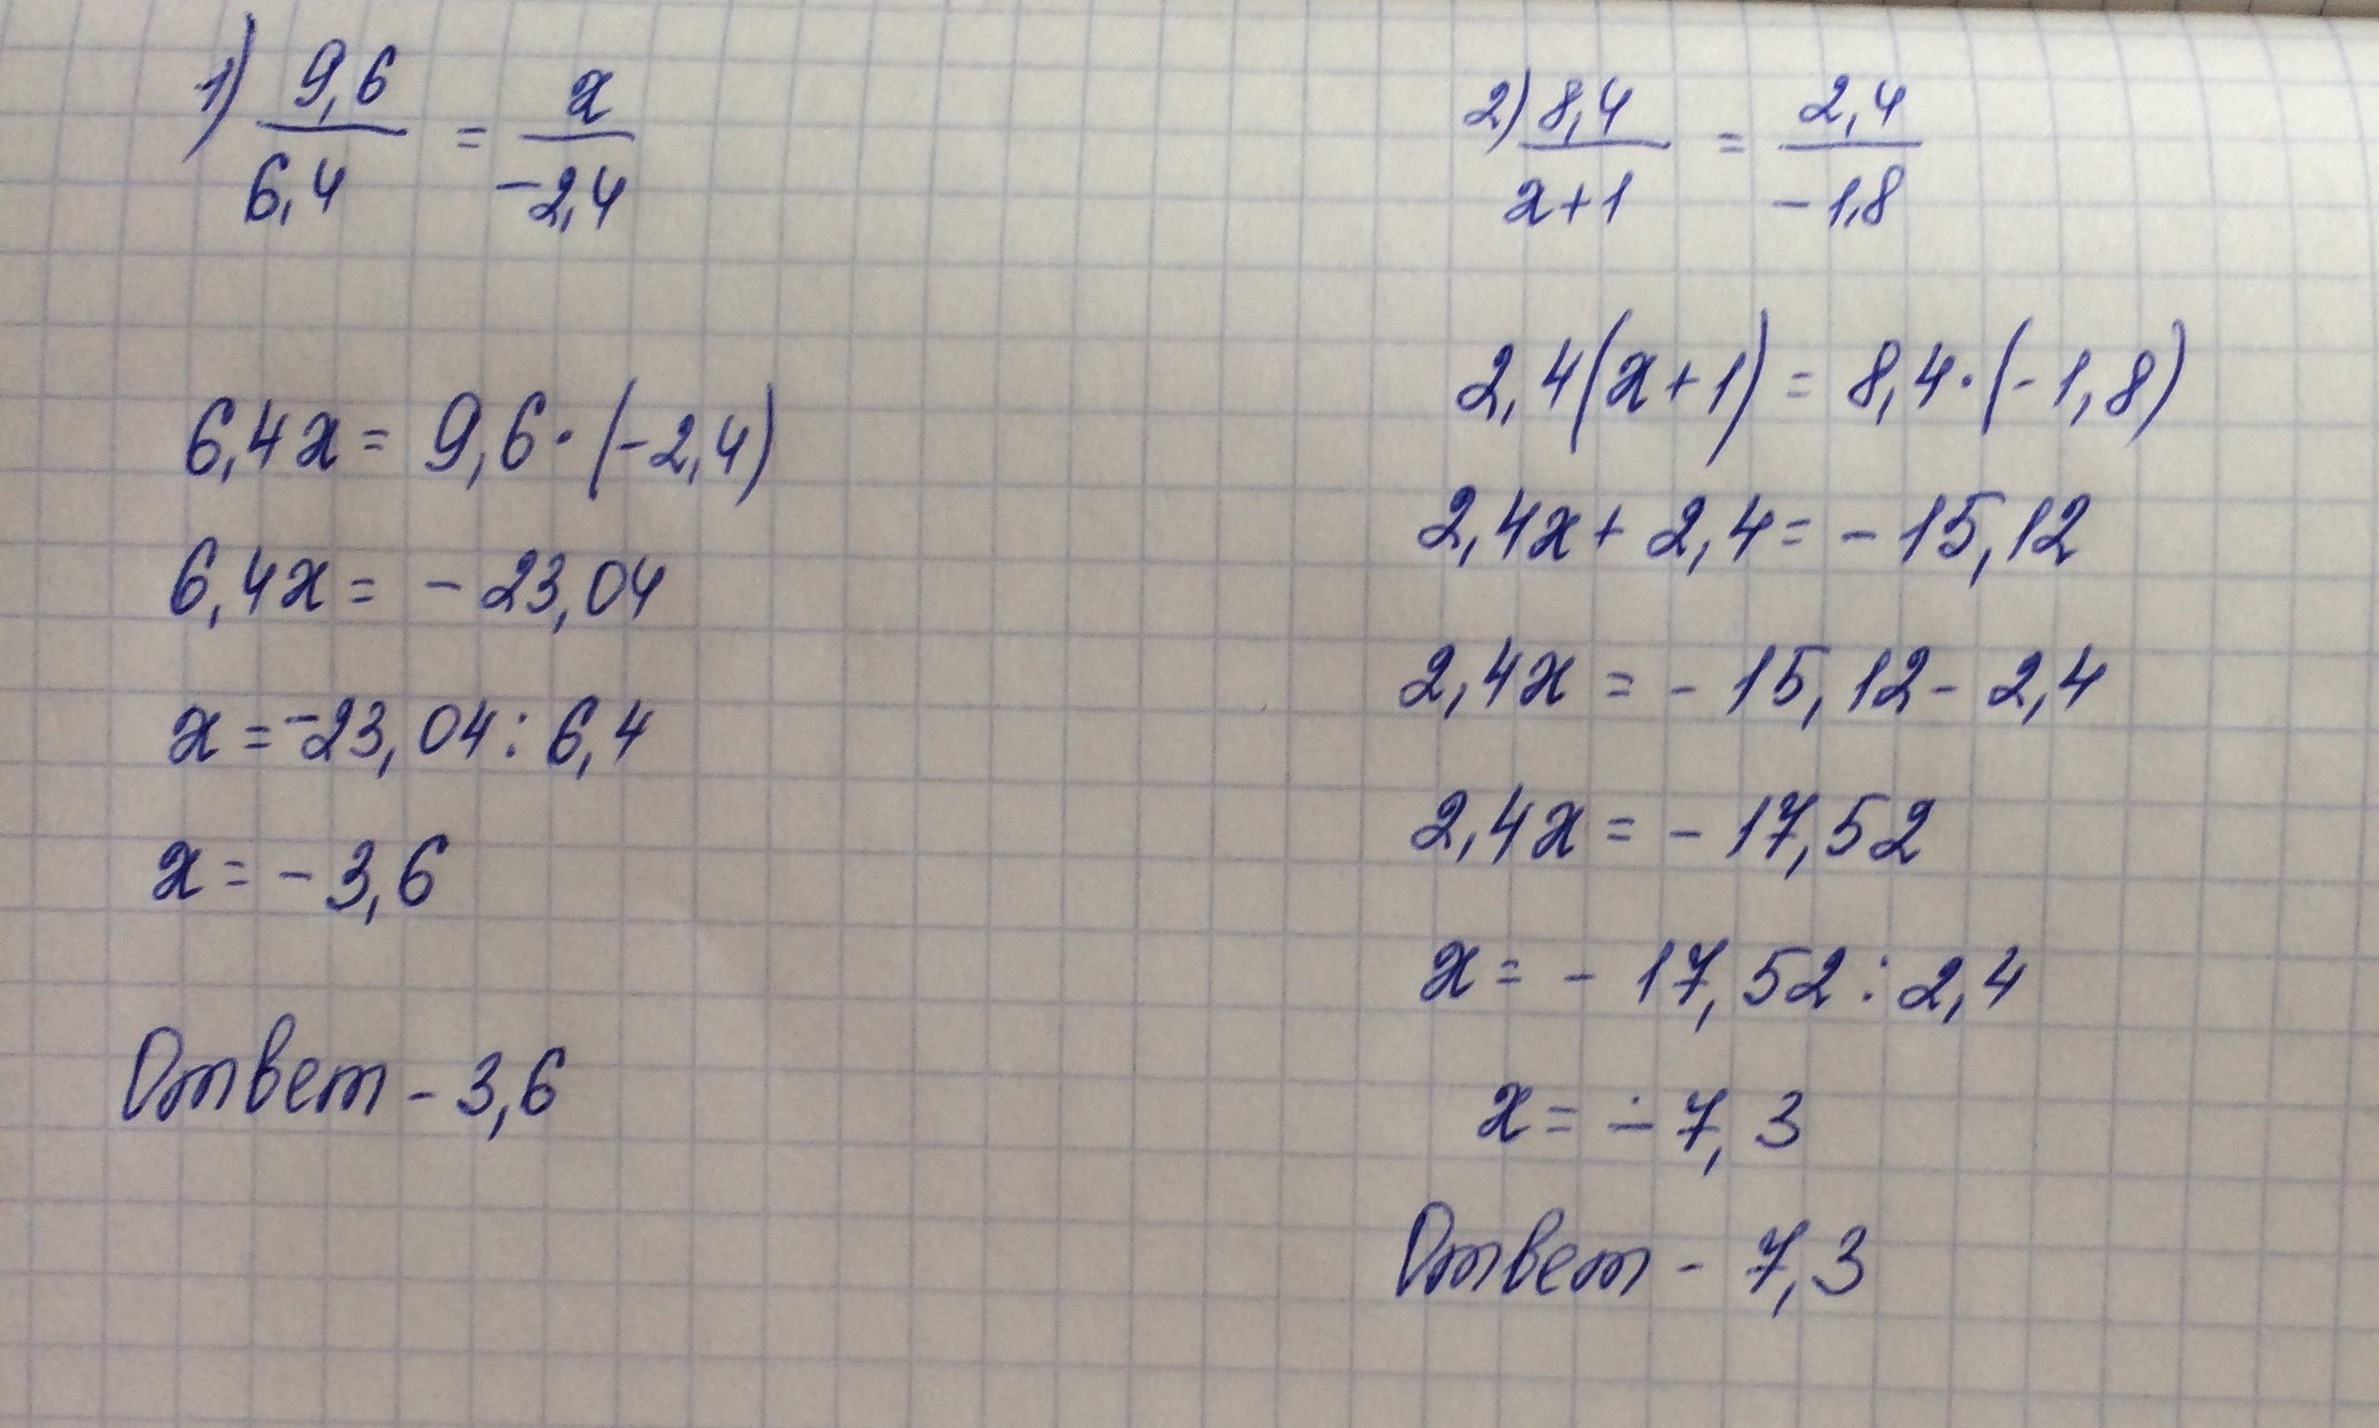 1) 9,6/6,4 = x/-2,4
6,4x = 9,6 · (-2,4)
6,4x = - 23,04
x = -23,04 : 6,4
x = - 3,6
Ответ - 3,6
2) 8,4/x+1 = 2,4/-1,8
2,4(x+1) = 8,4 · (-1,8)
2,4x + 2,4 = - 15,12
2,4x = - 15,12 - 2,4
2,4x = - 17,52
x = - 17,52 : 2,4
x = - 7,3
Ответ - 7,3